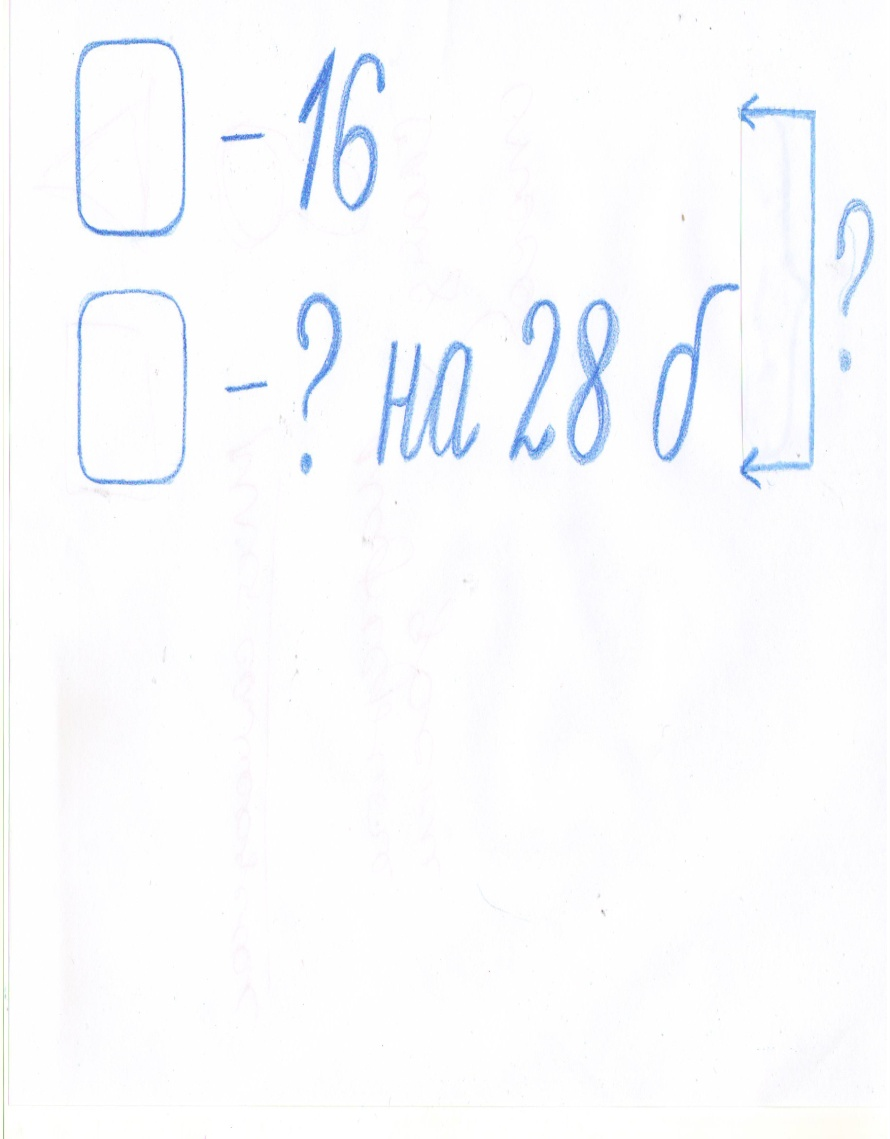 - 16
- ? на 28 б
?